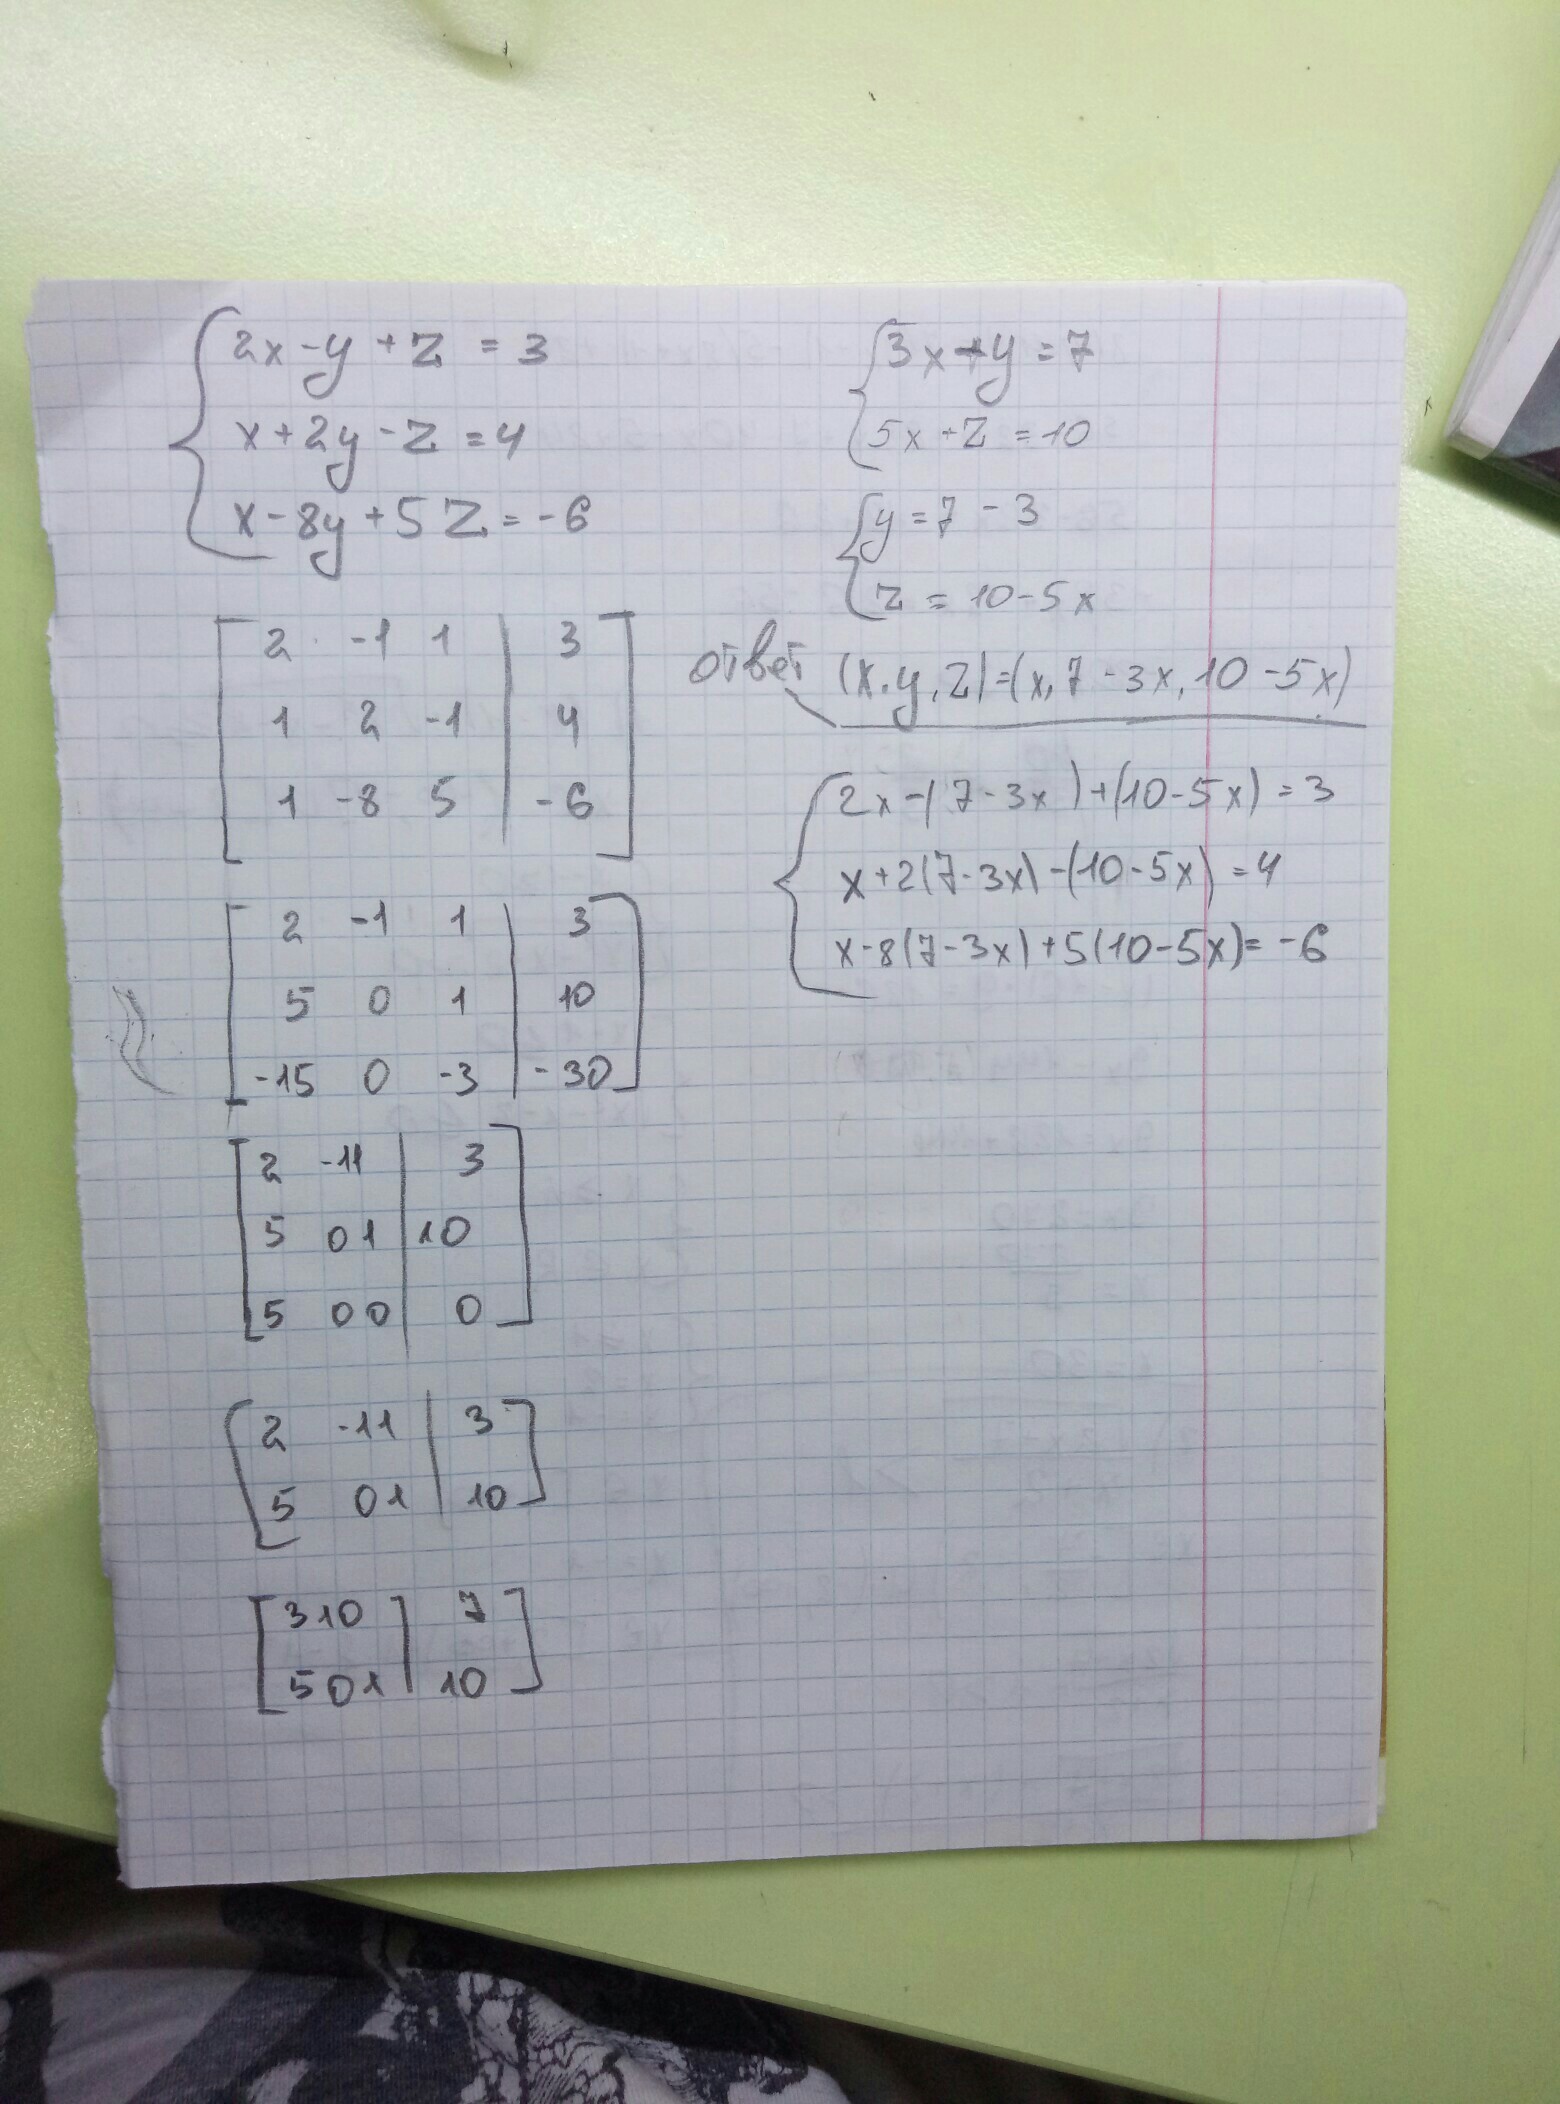 2x-y+z=3
x+2y-z=4
x-8y+5z=-6
2 -1 1 | 3
1 2 -1 | 4
1 -8 5 | -6
2 -1 1 | 3
5 0 1 | 10
-15 0 -3 | -30
2 -1 1 | 3
5 0 1 | 10
5 0 0 | 0
2 -1 1 | 3
5 0 1 | 10
3 1 0 | 7
5 0 1 | 10
3x+y=7
5x+z=10
y=7-3
z=10-5x
ответ (x.y,z)=(x,7-3x,10-5x)
2x-(7-3x)+(10-5x)=3
x+2(7-3x)-(10-5x)=4
x-8(7-3x)+5(10-5x)=-6